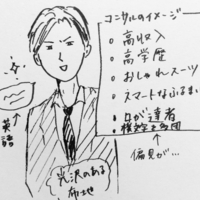 コンサルのイメージ
・高収入
・高学歴
・おしゃれスーツ
・スマートなふるまい
・口が達者
偏見が…
英語
光沢のある
布地